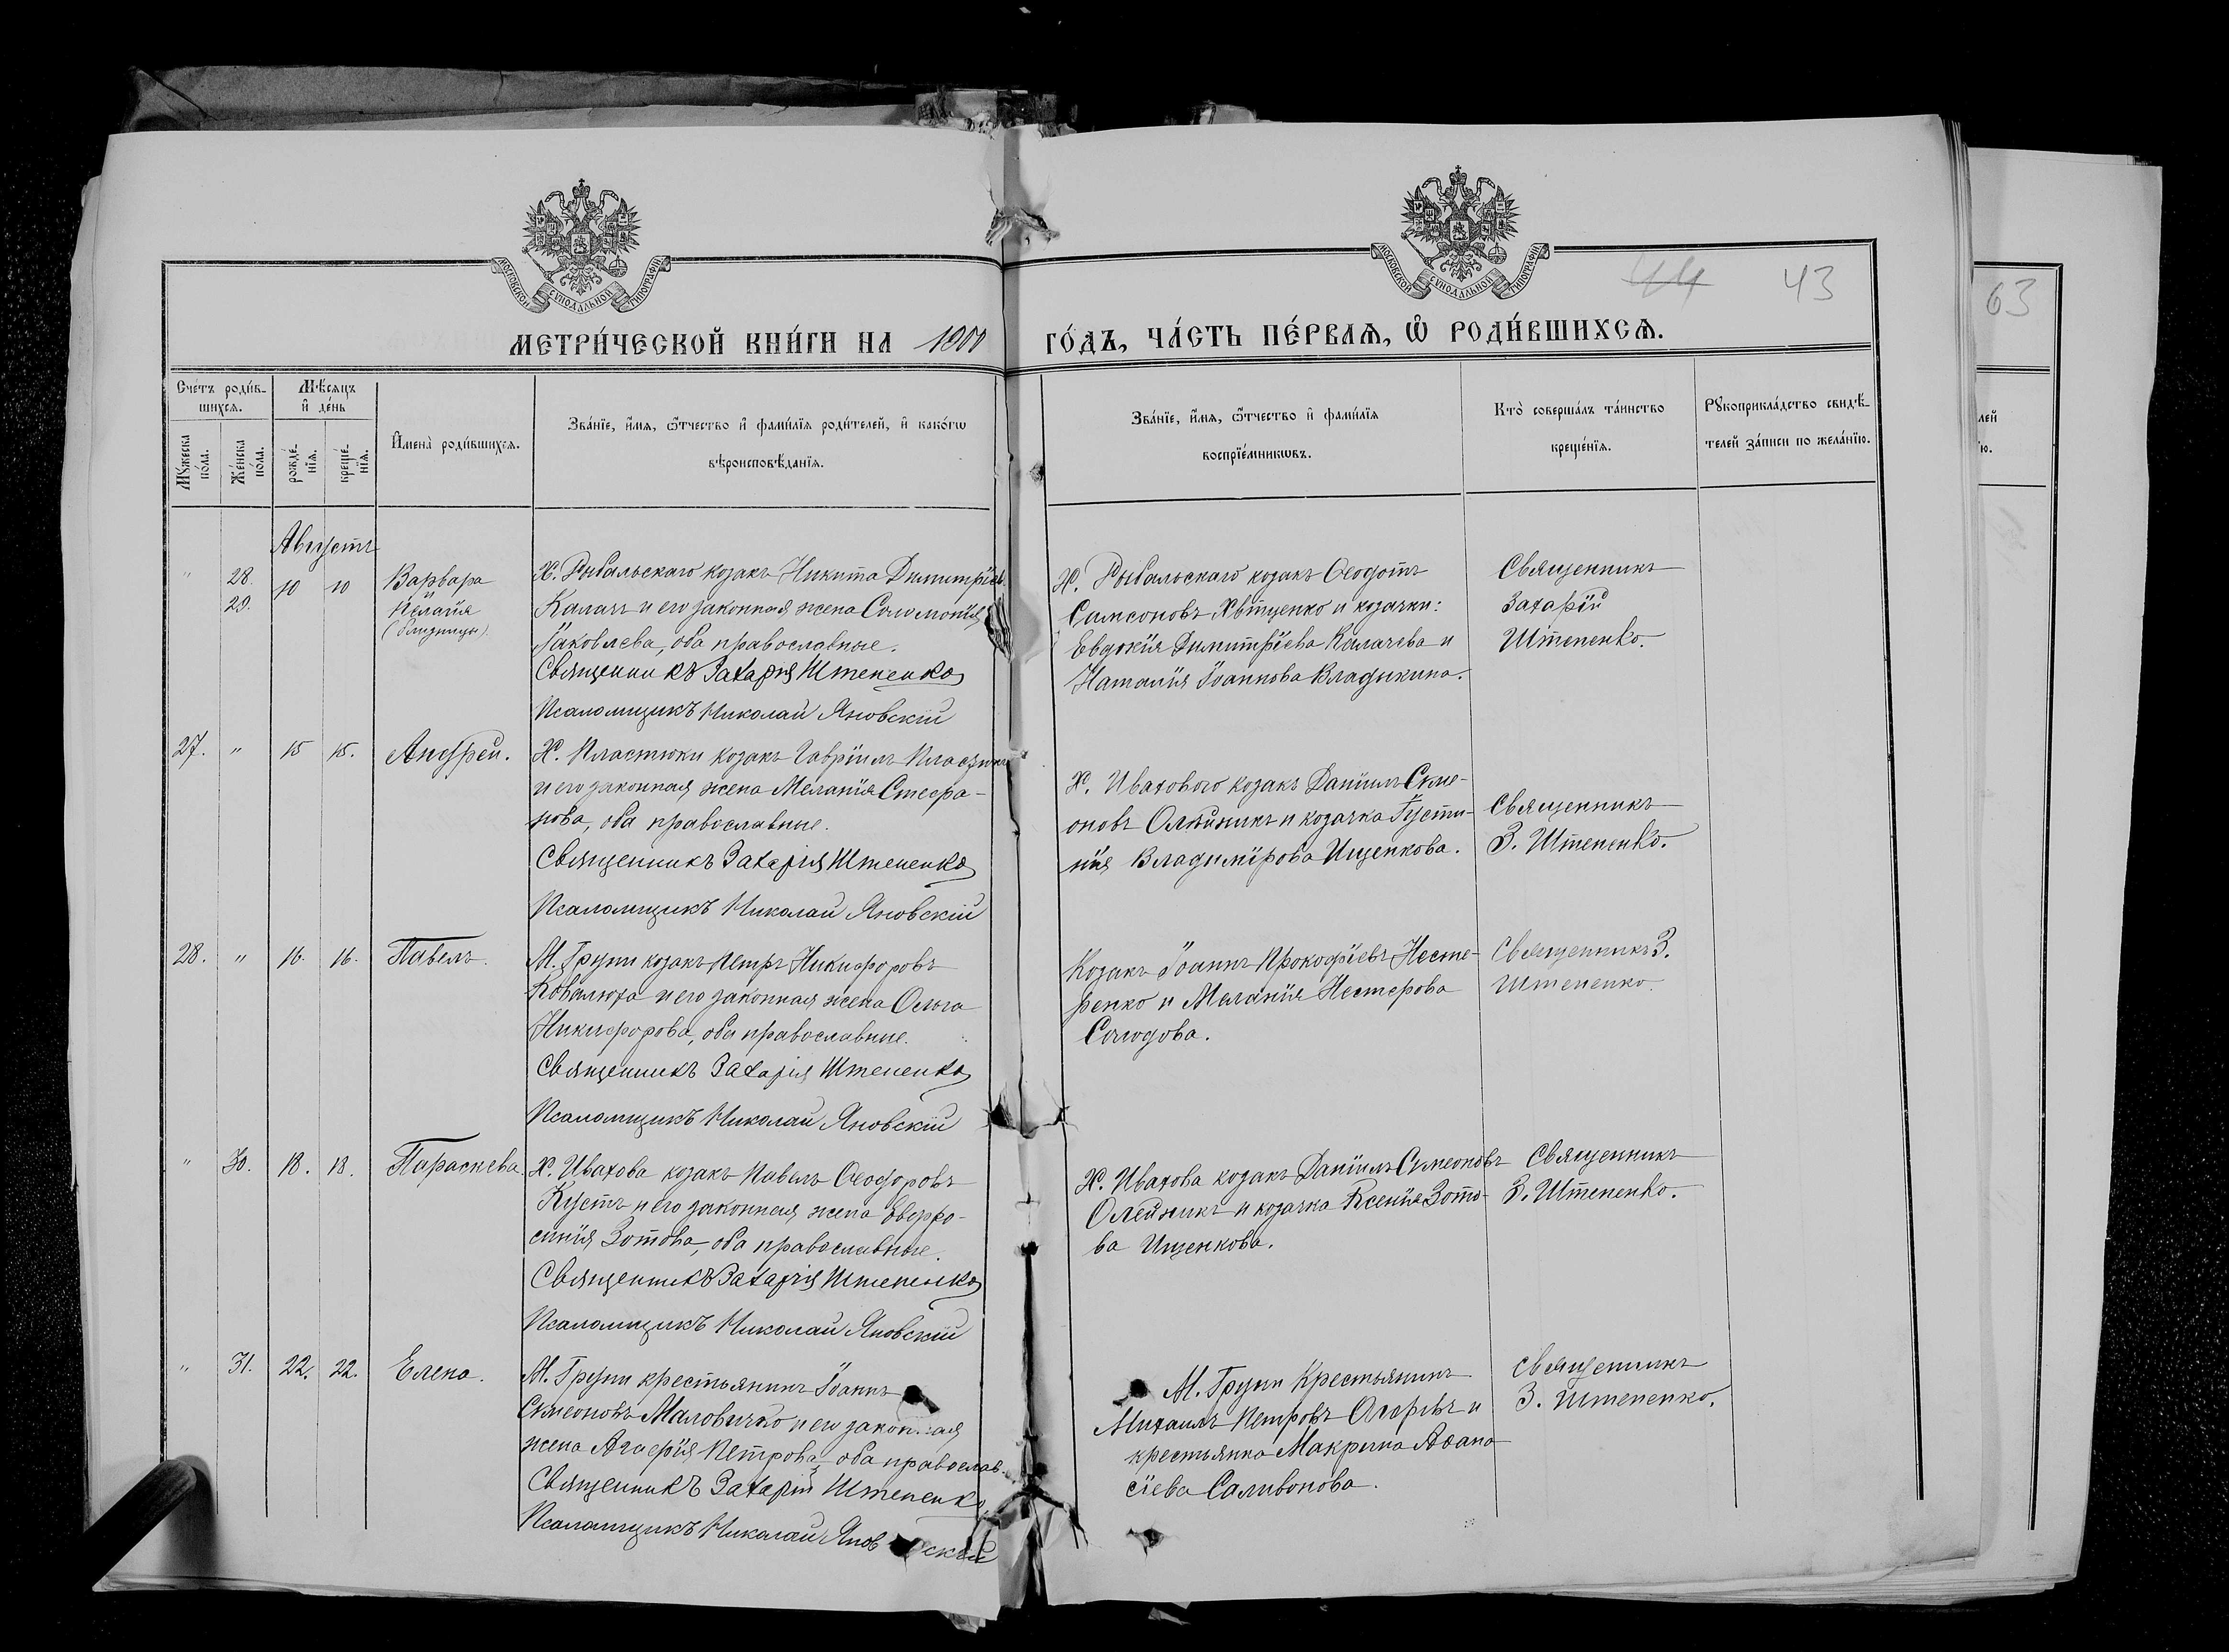 МОСКОВСКОЙ СѴНОДАЛЬНОЙ ТИПОГРАФІИ
МОСКОВСКОЙ СѴНОДАЛЬНОЙ ТИПОГРАФІИ
44 43
63
МЕТРИ́ЧЕСКОЙ КНИ́ГИ НА 1900 ГО́ДЪ, ЧА́СТЬ ПЕ́РВАѦ, Ѡ҆ РОДИ́ВШИХСѦ.
Сче́тъ роди́в-
шихсѧ.
Мѣ́сѧцъ
и҆ де́нь
Мꙋ́жеска по́ла.
Же́нска по́ла.
рожде́-нїѧ.
креще́-нїѧ.
И҆мена̀ роди́вшихсѧ.
Зва́нїе, и҆́мѧ, ѻ҆́тчество и҆ фами́лїѧ роди́телей, и҆ како́гѡ
вѣроисповѣ́данїѧ.
Зва́нїе, и҆́мѧ, ѻ҆́тчество и҆ фами́лїѧ
воспрїе́мникѡвъ.
Кто̀ соверша́лъ та́инство
креще́нїѧ.
Рꙋкоприкла́дство свидѣ́-
телей за́писи по жела́нїю.
лей
ю.
Августъ
" 28. 10 10 Варвара
29. и
Пелагія
(близницы).
Х. Рыбальскаго козакъ Никита Димитріев.
Калачъ и его законная жена Соломонія
Іаковлева, оба православные.
Священникъ Захарія Штепенко
Псаломщикъ Николай Яновскій
Х. Рыбальскаго козакъ Ѳеодотъ
Сампсоновъ Хвтценко и козачки:
Евдокія Димитріева Калачева и
Наталія Іоаннова Владыкина.
Священникъ
Захарій
Штепенко.
27. " 15 15. Андрей.
Х. Пластюки козакъ Гавріилъ Пластюкъ
и его законная жена Меланія Стефа-
нова, оба православные.
Священникъ Захарія Штепенко
Псаломщикъ Николай Яновскій
Х. Ивахового козакъ Даніилъ Симе-
оновъ Олейникъ и козачка Іусти-
нія Владимірова Ищенкова.
Священникъ
З. Штепенко.
28. " 16. 16. Павелъ.
М. Груни козакъ Петръ Никифоровъ
Ковалюха и его законная жена Ольга
Никифорова, оба православные.
Священникъ Захарія Штепенко
Псаломщикъ Николай Яновскій
Козакъ Іоаннъ Прокофіевъ Несте-
ренко и Меланія Нестерова
Солодова.
Священникъ З.
Штепенко.
" 30. 18. 18. Параскева.
Х. Ивахова козакъ Павелъ Ѳеодоровъ
Кустъ и его законная жена Евфро-
синія Зотова, оба православные.
Священникъ Захарія Штепенко
Псаломщикъ Николай Яновскій
Х. Ивахова козакъ Даніилъ Симеоновъ
Олейникъ и козачка Ксенія Зото-
ва Ищенкова.
Священникъ
З. Штепенко.
" 31. 22. 22. Елена.
М. Груни крестьянинъ Іоаннъ
Симеоновъ Маловичко и его законная
жена Агафія Петрова, оба православ.
Священникъ Захарій Штепенко
Псаломщикъ Николай Яновскій
М. Груни Крестьянинъ
Михаилъ Петровъ Огаревъ и
крестьянка Макрина Аѳана
сіева Саливонова.
Священникъ
З. Штепенко.